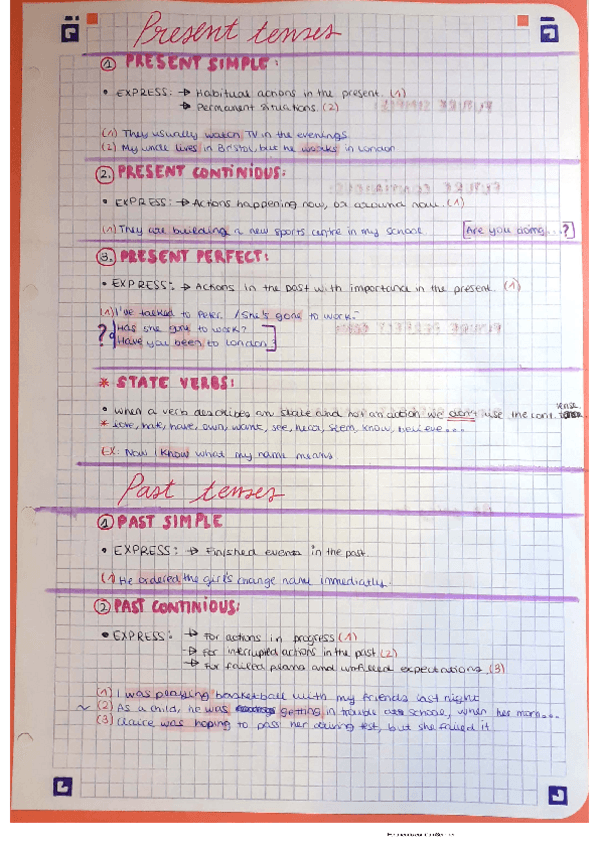 Present tenses
① PRESENT SIMPLE:
• EXPRESS: → Habitual actions in the present. (1)
→ Permanent situations. (2)
(1) They usually watch TV in the evenings.
(2) My uncle lives in Bristol, but he works in London
2. PRESENT CONTINIOUS:
• EXPRESS: → Actions happening now, or around now. (1)
(1) They are building a new sports centre in my school [Are you doing...?]
3. PRESENT PERFECT:
• EXPRESS: → Actions in the past with importance in the present. (1)
(1) I've talked to Peter. / She's gone to work.
? Has she gone to work?
Have you been to London?
* STATE VERBS:
• when a verb describes an state and not an action we don't use the cont. tense
* love, hate, have, own, want, see, hear, seem, know, believe...
EX: Now I know what my name means
Past tenses
① PAST SIMPLE
• EXPRESS: → Finished events in the past.
(1) He ordered the girl's change name immediatly.
② PAST CONTINIOUS:
• EXPRESS: → For actions in progress (1)
→ For interrupted actions in the past (2)
→ For failed plans and unfilled expectations. (3)
(1) I was playing basketball with my friends last night
(2) As a child, he was getting in trouble at school, when her mom...
(3) Claire was hoping to pass her driving test, but she failed it.